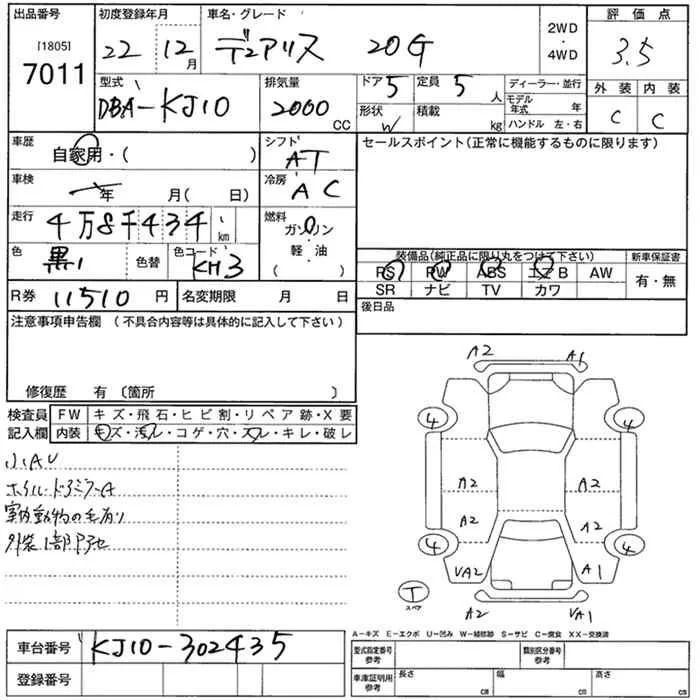 出品番号 初度登録年月 車名・グレード 評価点
[1805]
7011
22 12月 デュアリス 20G
2WD
・
4WD
3.5
型式 排気量 ドア 定員 ディーラー・並行 外装 内装
DBA-KJ10 2000CC 5 5人
モデル年式 年
形状 W 積載 kg ハンドル 左・右
C C
車歴 自家用・( )
シフト AT
セールスポイント(正常に機能するものに限ります)
車検 年 月( 日)
冷房 AC
走行 4万8千434km
燃料 ガソリン
軽・油
( )
色 黒 色替 色コード KH3
装備品(純正品に限り丸をつけて下さい) 新車保証書
PS PW ABS エアB AW 有・無
SR ナビ TV カワ
R券 11510円 名変期限 月 日
後日品
注意事項申告欄(不具合内容等は具体的に記入して下さい)
修復歴 有(箇所 )
検査員 FW キズ・飛石・ヒビ割・リペア跡・X要
記入欄 内装 キズ・汚レ・コゲ・穴・スレ・キレ・破レ
小AU
ホイル・ドアミラーA
室内動物の毛有り
外装1部
A2 A1
4 4
A2 A2
A2 A2
4 4
VA2 A1
T
スペア
A2 VA1
A-キズ E-エクボ U-凹み W-補修跡 S-サビ C-腐食 XX-交換済
車台番号 KJ10-302435
登録番号
型式指定番号 参考 類別区分番号 参考
車庫証明用 参考 長さ cm 幅 cm 高さ cm